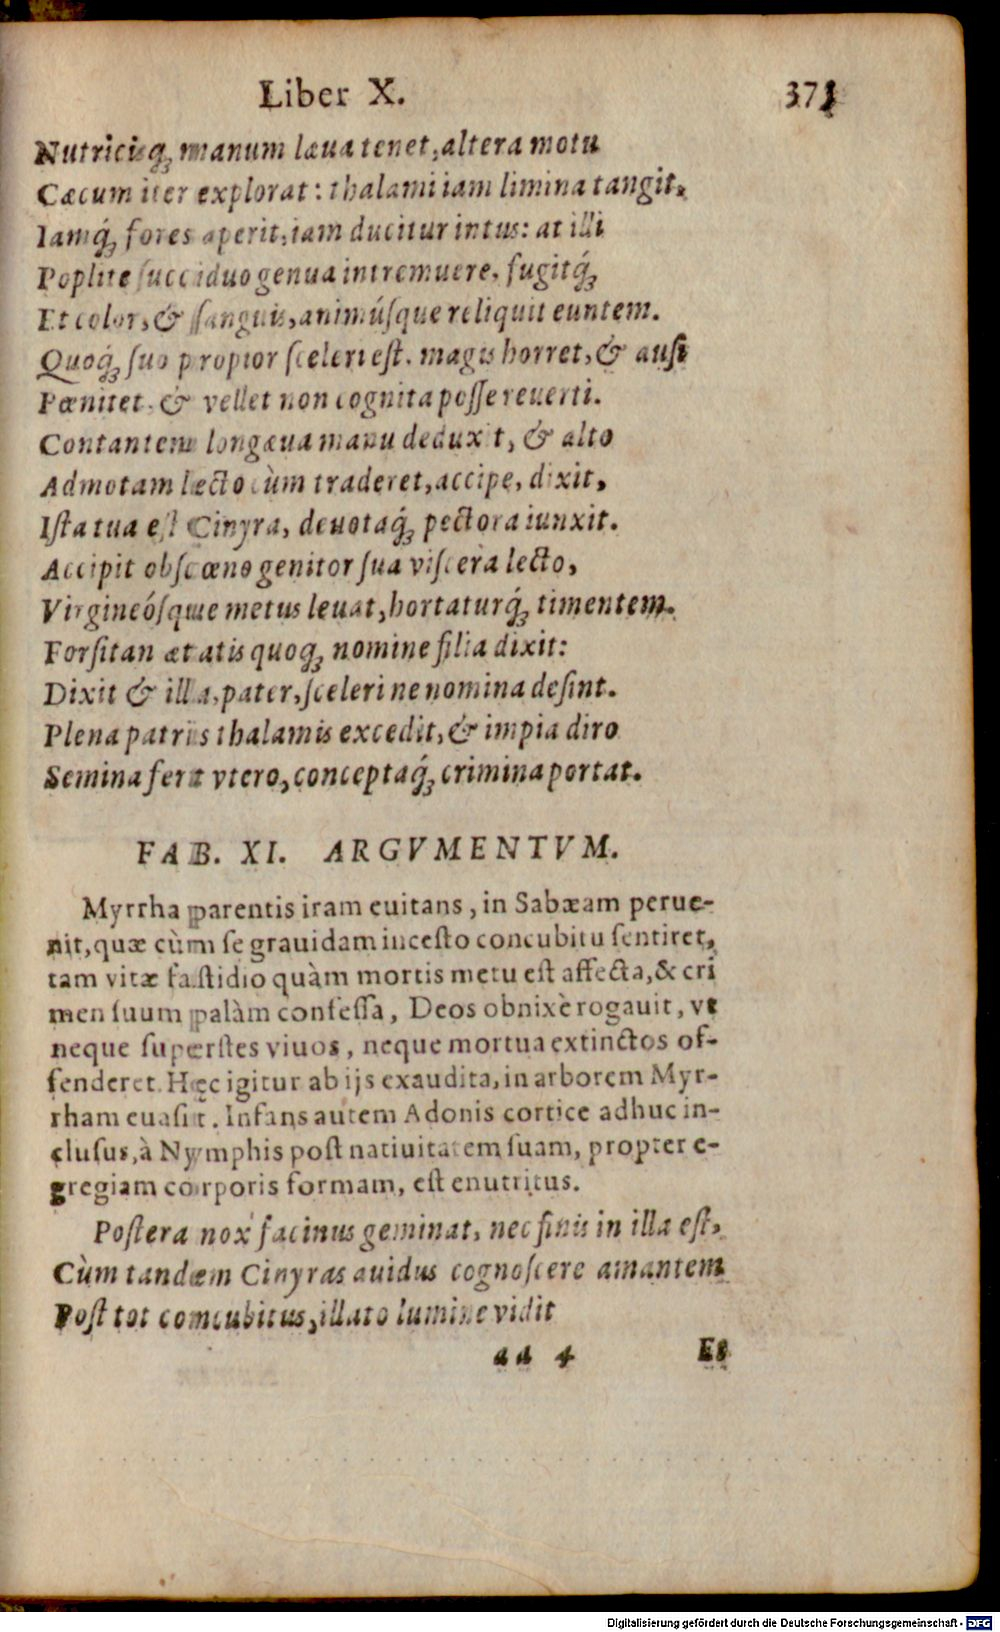 Liber X. 371
Nutricisq́; manum læua tenet, altera motu
Cæcum iter explorat: thalami iam limina tangit,
Iamq́; fores aperit, iam ducitur intus: at illi
Poplite ſucciduo genua intremuere, fugitq́;
Et color, & ſanguis, animúſque reliquit euntem.
Quoq́; ſuo propior ſceleri eſt. magis horret, & auſi
Pœnitet, & vellet non cognita poſſe reuerti.
Contantem longæua manu deduxit, & alto
Admotam lecto cùm traderet, accipe, dixit,
Iſta tua eſt Cinyra, deuotaq́; pectora iunxit.
Accipit obſcœno genitor ſua viſcera lecto,
Virgineóſque metus leuat, hortaturq́; timentem.
Forſitan ætatis quoq; nomine filia dixit:
Dixit & illa, pater, ſceleri ne nomina deſint.
Plena patriis thalamis excedit, & impia diro
Semina fert vtero, conceptaq́; crimina portat.
FAB. XI. ARGVMENTVM.
Myrrha parentis iram euitans, in Sabæam perue-
nit, quæ cùm ſe grauidam inceſto concubitu ſentiret,
tam vitæ faſtidio quàm mortis metu eſt affecta, & cri
men ſuum palàm confeſſa, Deos obnixè rogauit, vt
neque ſuperſtes viuos, neque mortua extinctos of-
fenderet. Hæc igitur ab ijs exaudita, in arborem Myr-
rham euaſit. Infans autem Adonis cortice adhuc in-
cluſus, à Nymphis poſt natiuitatem ſuam, propter e-
gregiam corporis formam, eſt enutritus.
Poſtera nox facinus geminat, nec finis in illa eſt,
Cùm tandem Cinyras auidus cognoſcere amantem
Poſt tot comcubitus, illato lumine vidit
aa 4 Et
Digitalisierung gefördert durch die Deutsche Forschungsgemeinschaft - DFG